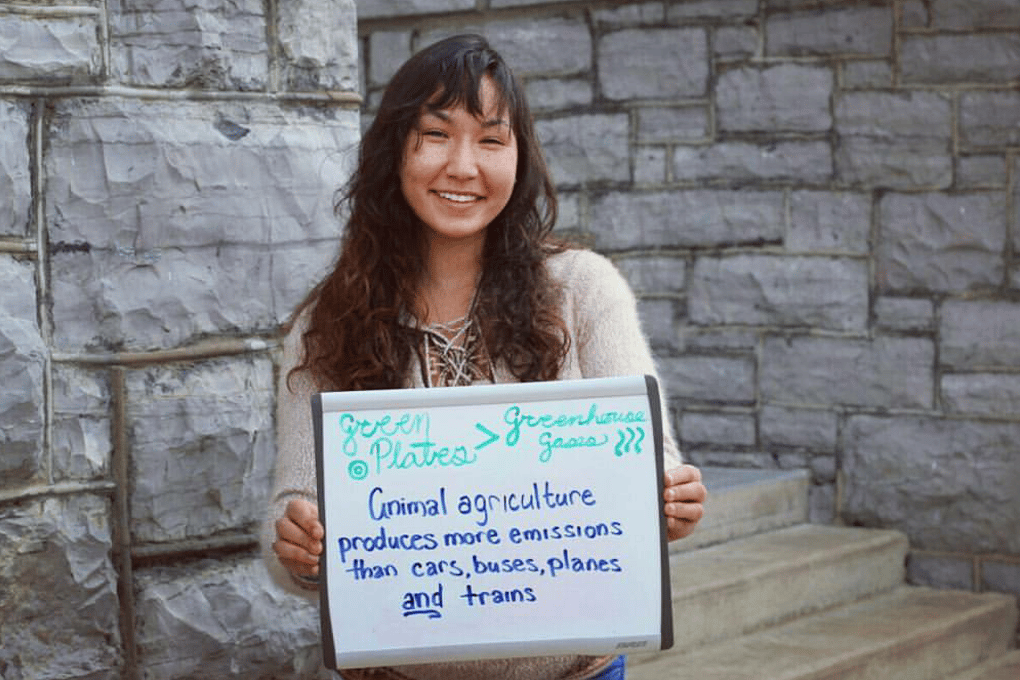 green Plates > Greenhouse gases
Animal agriculture
produces more emissions
than cars, buses, planes
and trains
STAPLES